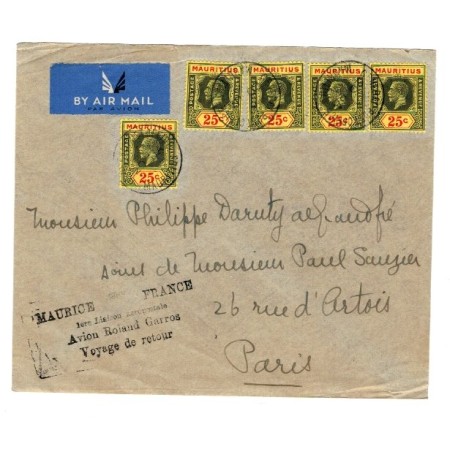 BY AIR MAIL
PAR AVION
MAURITIUS MAURITIUS MAURITIUS MAURITIUS
25c 25c 25c 25c
MAURITIUS
25c
Monsieur Philippe Daruty de
soins de Monsieur Paul Sauzier
26 rue d'Artois
Paris
MAURICE FRANCE
1ere Liaison
Avion Roland Garros
Voyage de retour